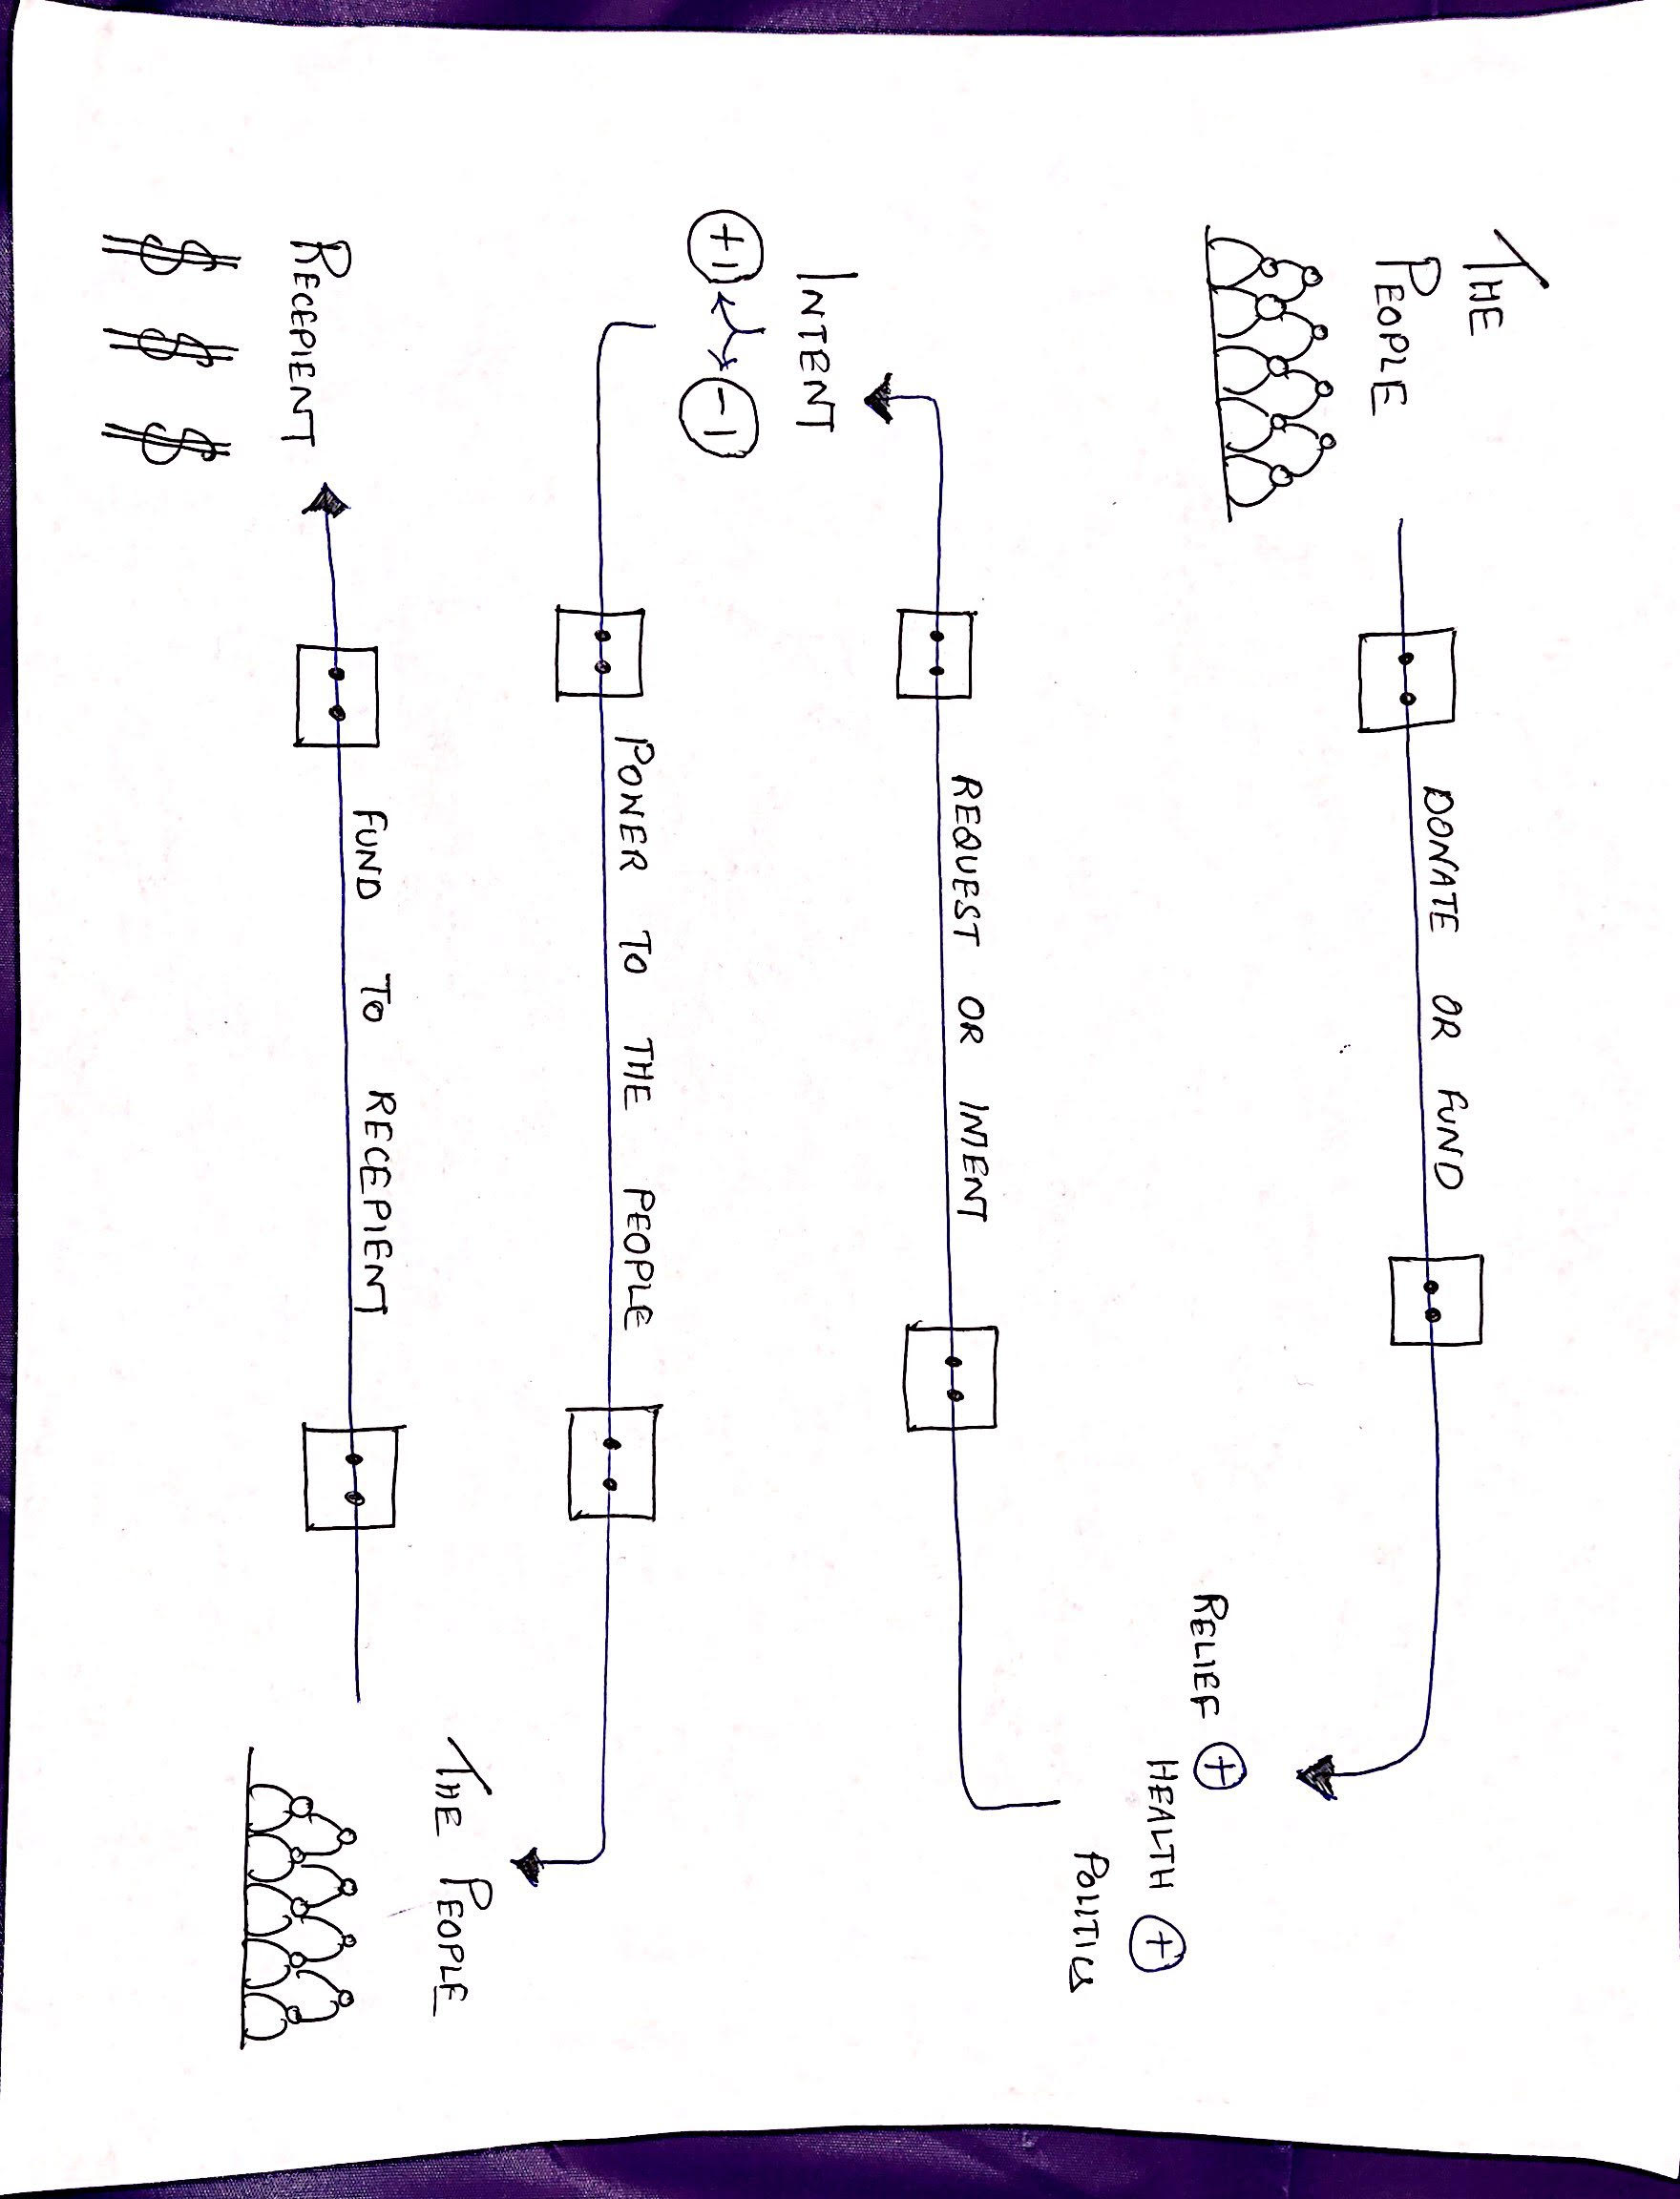 THE
PEOPLE
DONATE OR FUND
RELIEF +
HEALTH +
POLITICS
REQUEST OR INTENT
INTENT
+1 -1
POWER TO THE PEOPLE
THE PEOPLE
FUND TO RECEPIENT
RECEPIENT
$ $ $